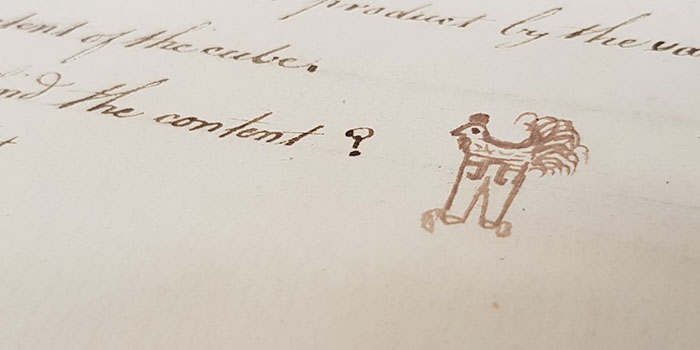 product by the
tent of the cube.
the content ?